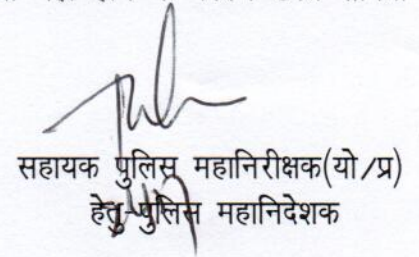 सहायक पुलिस महानिरीक्षक(यो/प्र)
हेतु-पुलिस महानिदेशक